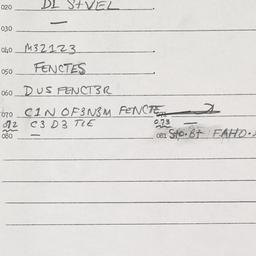 020 DI S+VEL
030 —
040 M32123
050 FENCTES
060 DUS FENCT3R
070 C1N OF3N3M FENCTE
072 C3 D3 TLE 073 —
080 — 081 Sto.Bt FAHO.